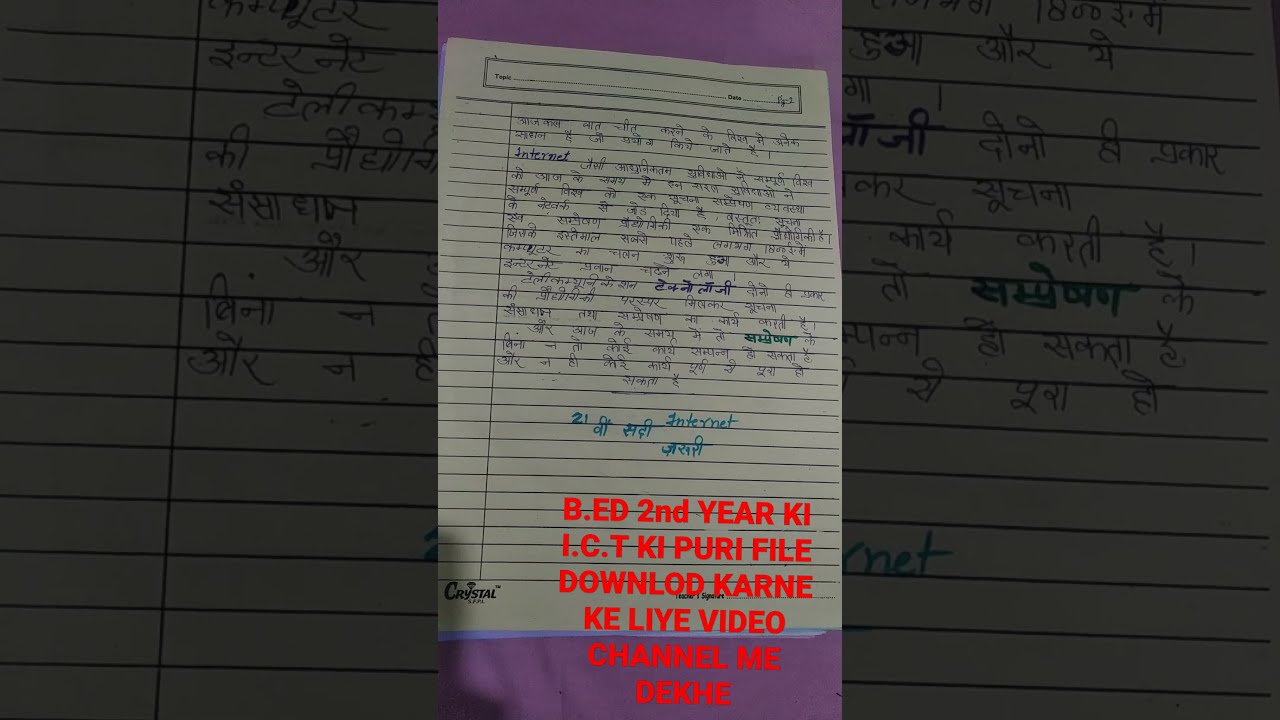 Topic
Date
Pg-2
आजकल बात चीत करने के विश्व में अनेक
साधन है जो प्रयोग किये जाते है ।
Internet जैसी आधुनिकतम सुविधाओं ने सम्पूर्ण विश्व
को आज के समय में इन सरल सुविधाओं ने
सम्पूर्ण विश्व को एक सूचना सम्प्रेषण व्यवस्था
के नेटवर्क से जोड़ दिया है , वस्तुतः सूचना
एवं सम्प्रेषण प्रौद्योगिकी एक मिश्रित प्रौद्योगिकी है।
जिसके इस्तेमाल सबसे पहले लगभग
कम्प्यूटर का चलन शुरू हुआ और ये
इन्टरनेट प्रधान चढ़ने लगा ।
टेलीकम्युनिकेशन टेक्नोलॉजी दोनो ही प्रकार
की प्रौद्योगिकी परस्पर मिलकर सूचना
संसाधन तथा सम्प्रेषण का कार्य करती है।
और आज के समय में तो सम्प्रेषण के
बिना न तो कोई कार्य सम्पन्न हो सकता है
और न ही कोई कार्य पूर्ण से पूरा हो
सकता है
21 वीं सदी Internet
ज़रूरी
CRYSTAL™
S.P.P.L
Teacher's Signature
B.ED 2nd YEAR KI
I.C.T KI PURI FILE
DOWNLOD KARNE
KE LIYE VIDEO
CHANNEL ME
DEKHE